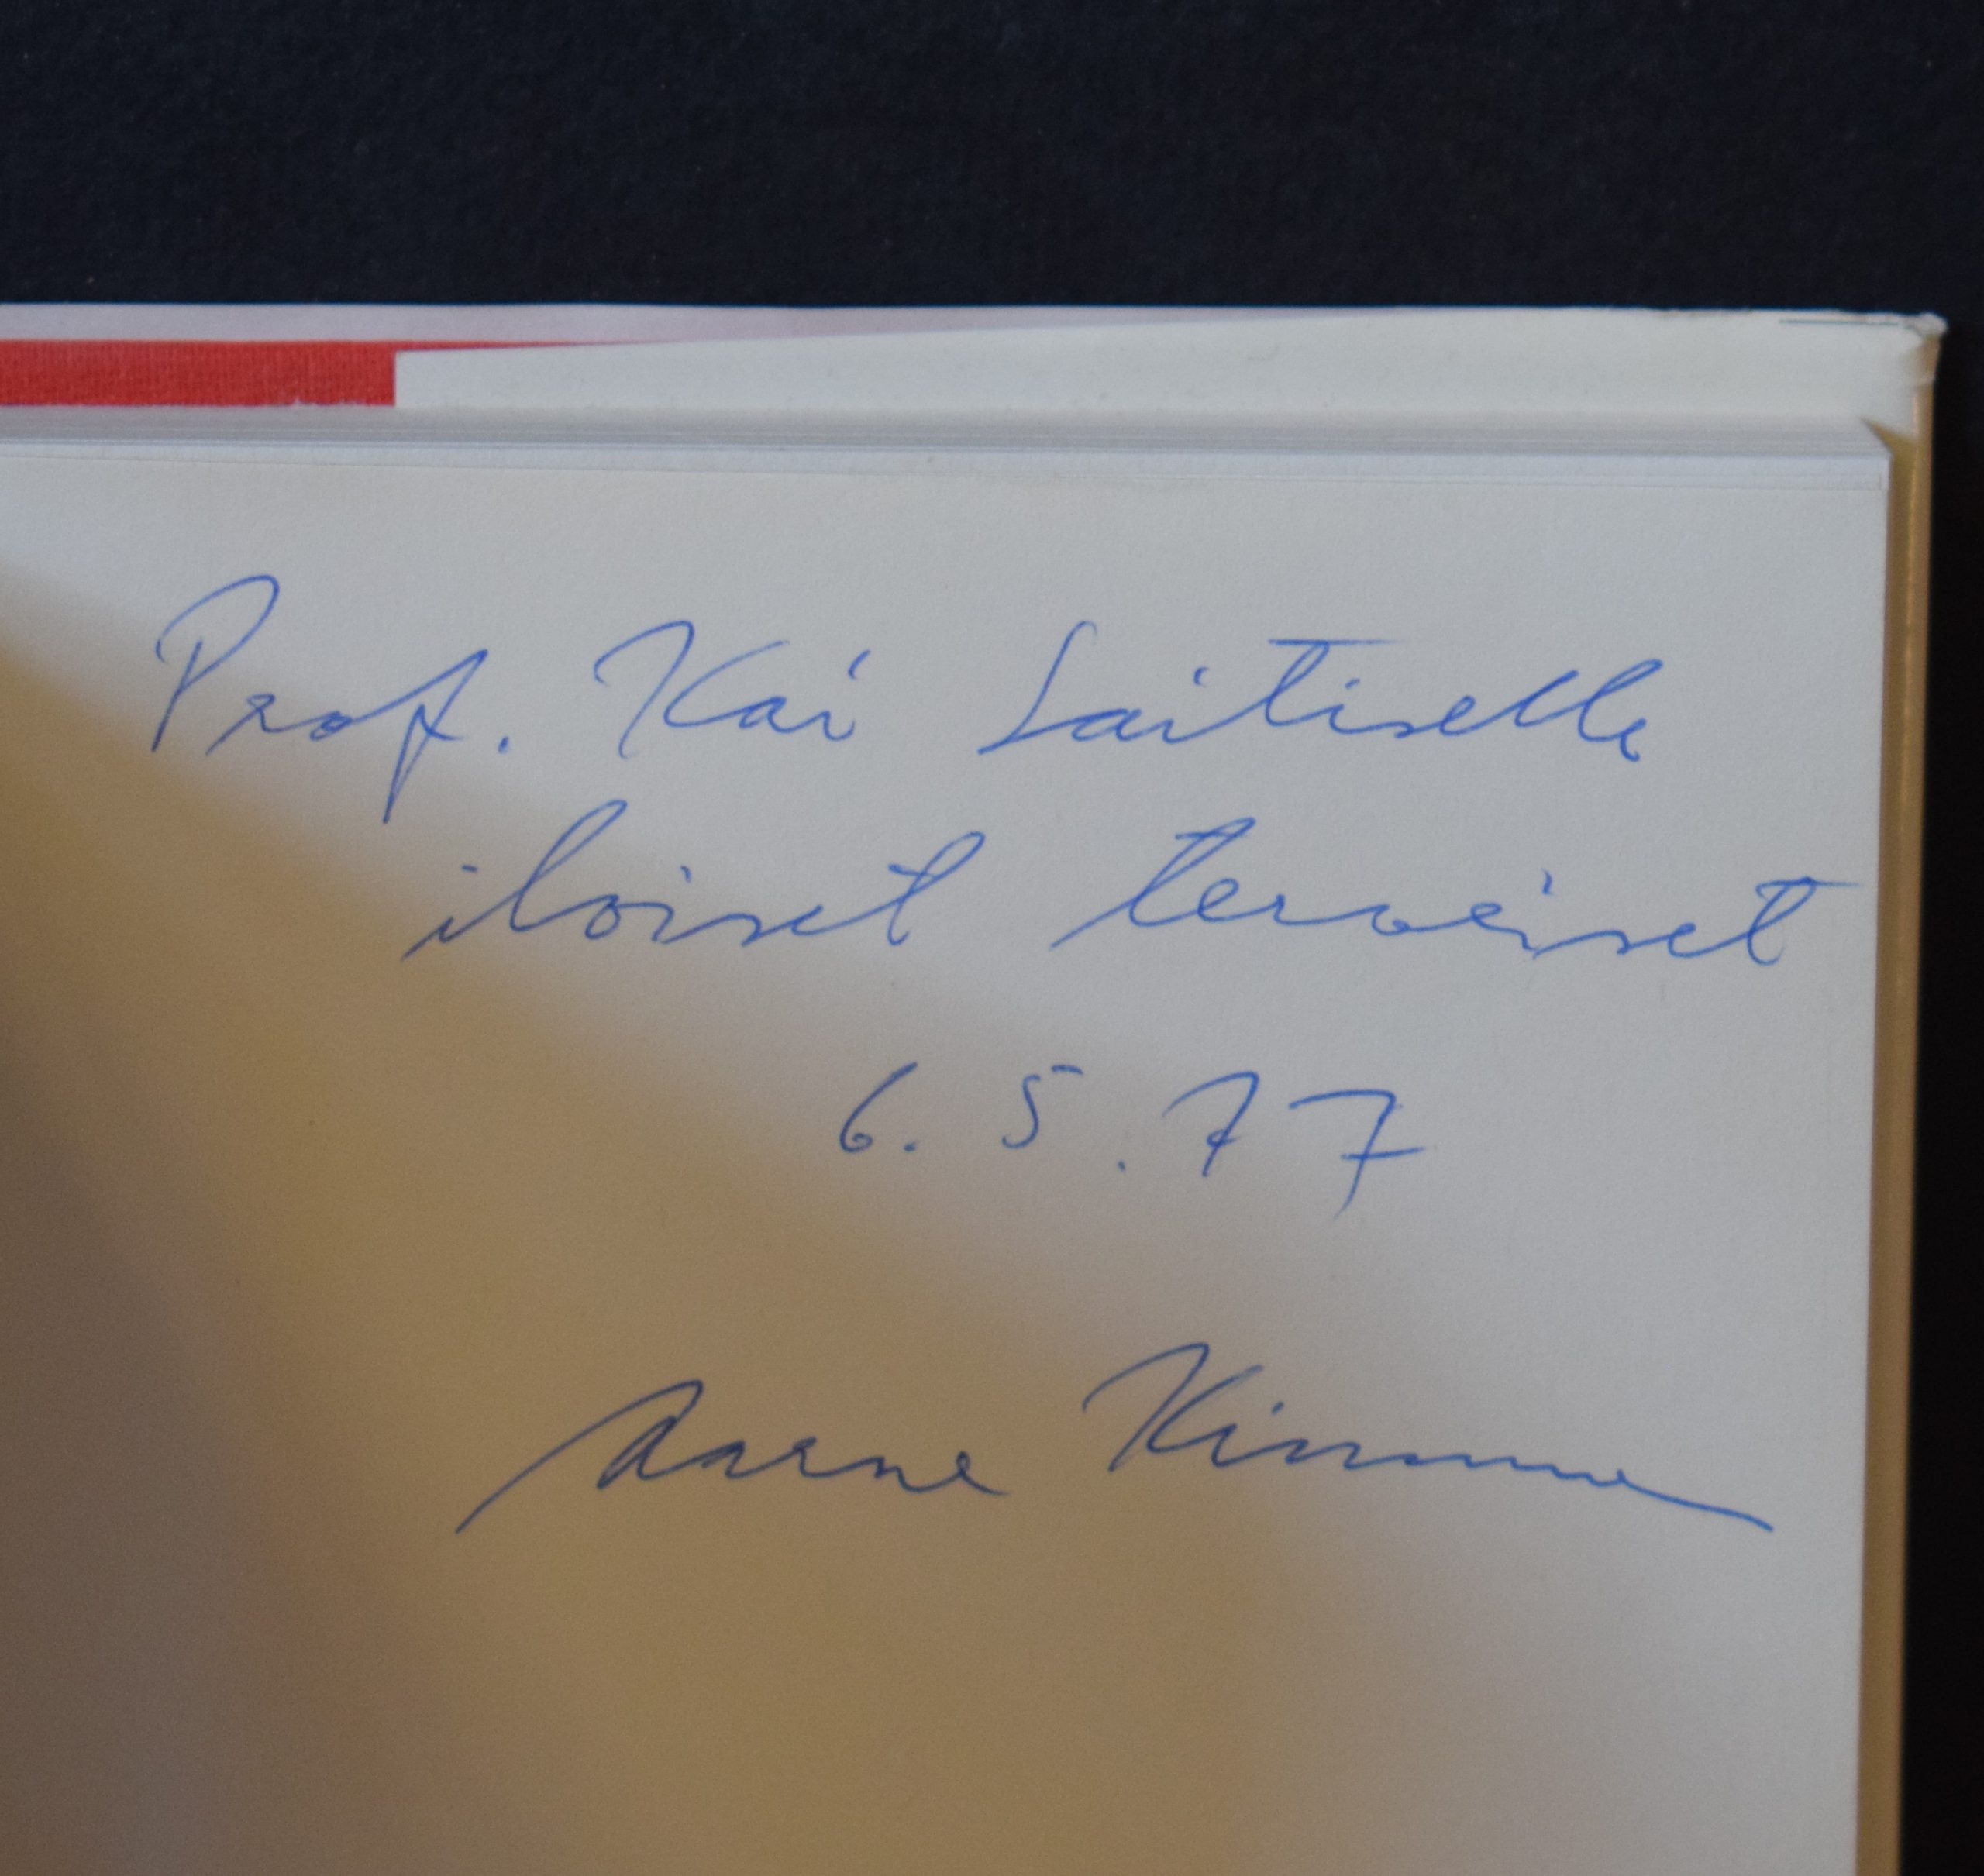 Prof. Kai Laitiselle
iloiset terveiset
6.5.77
Aarne Kinnunen